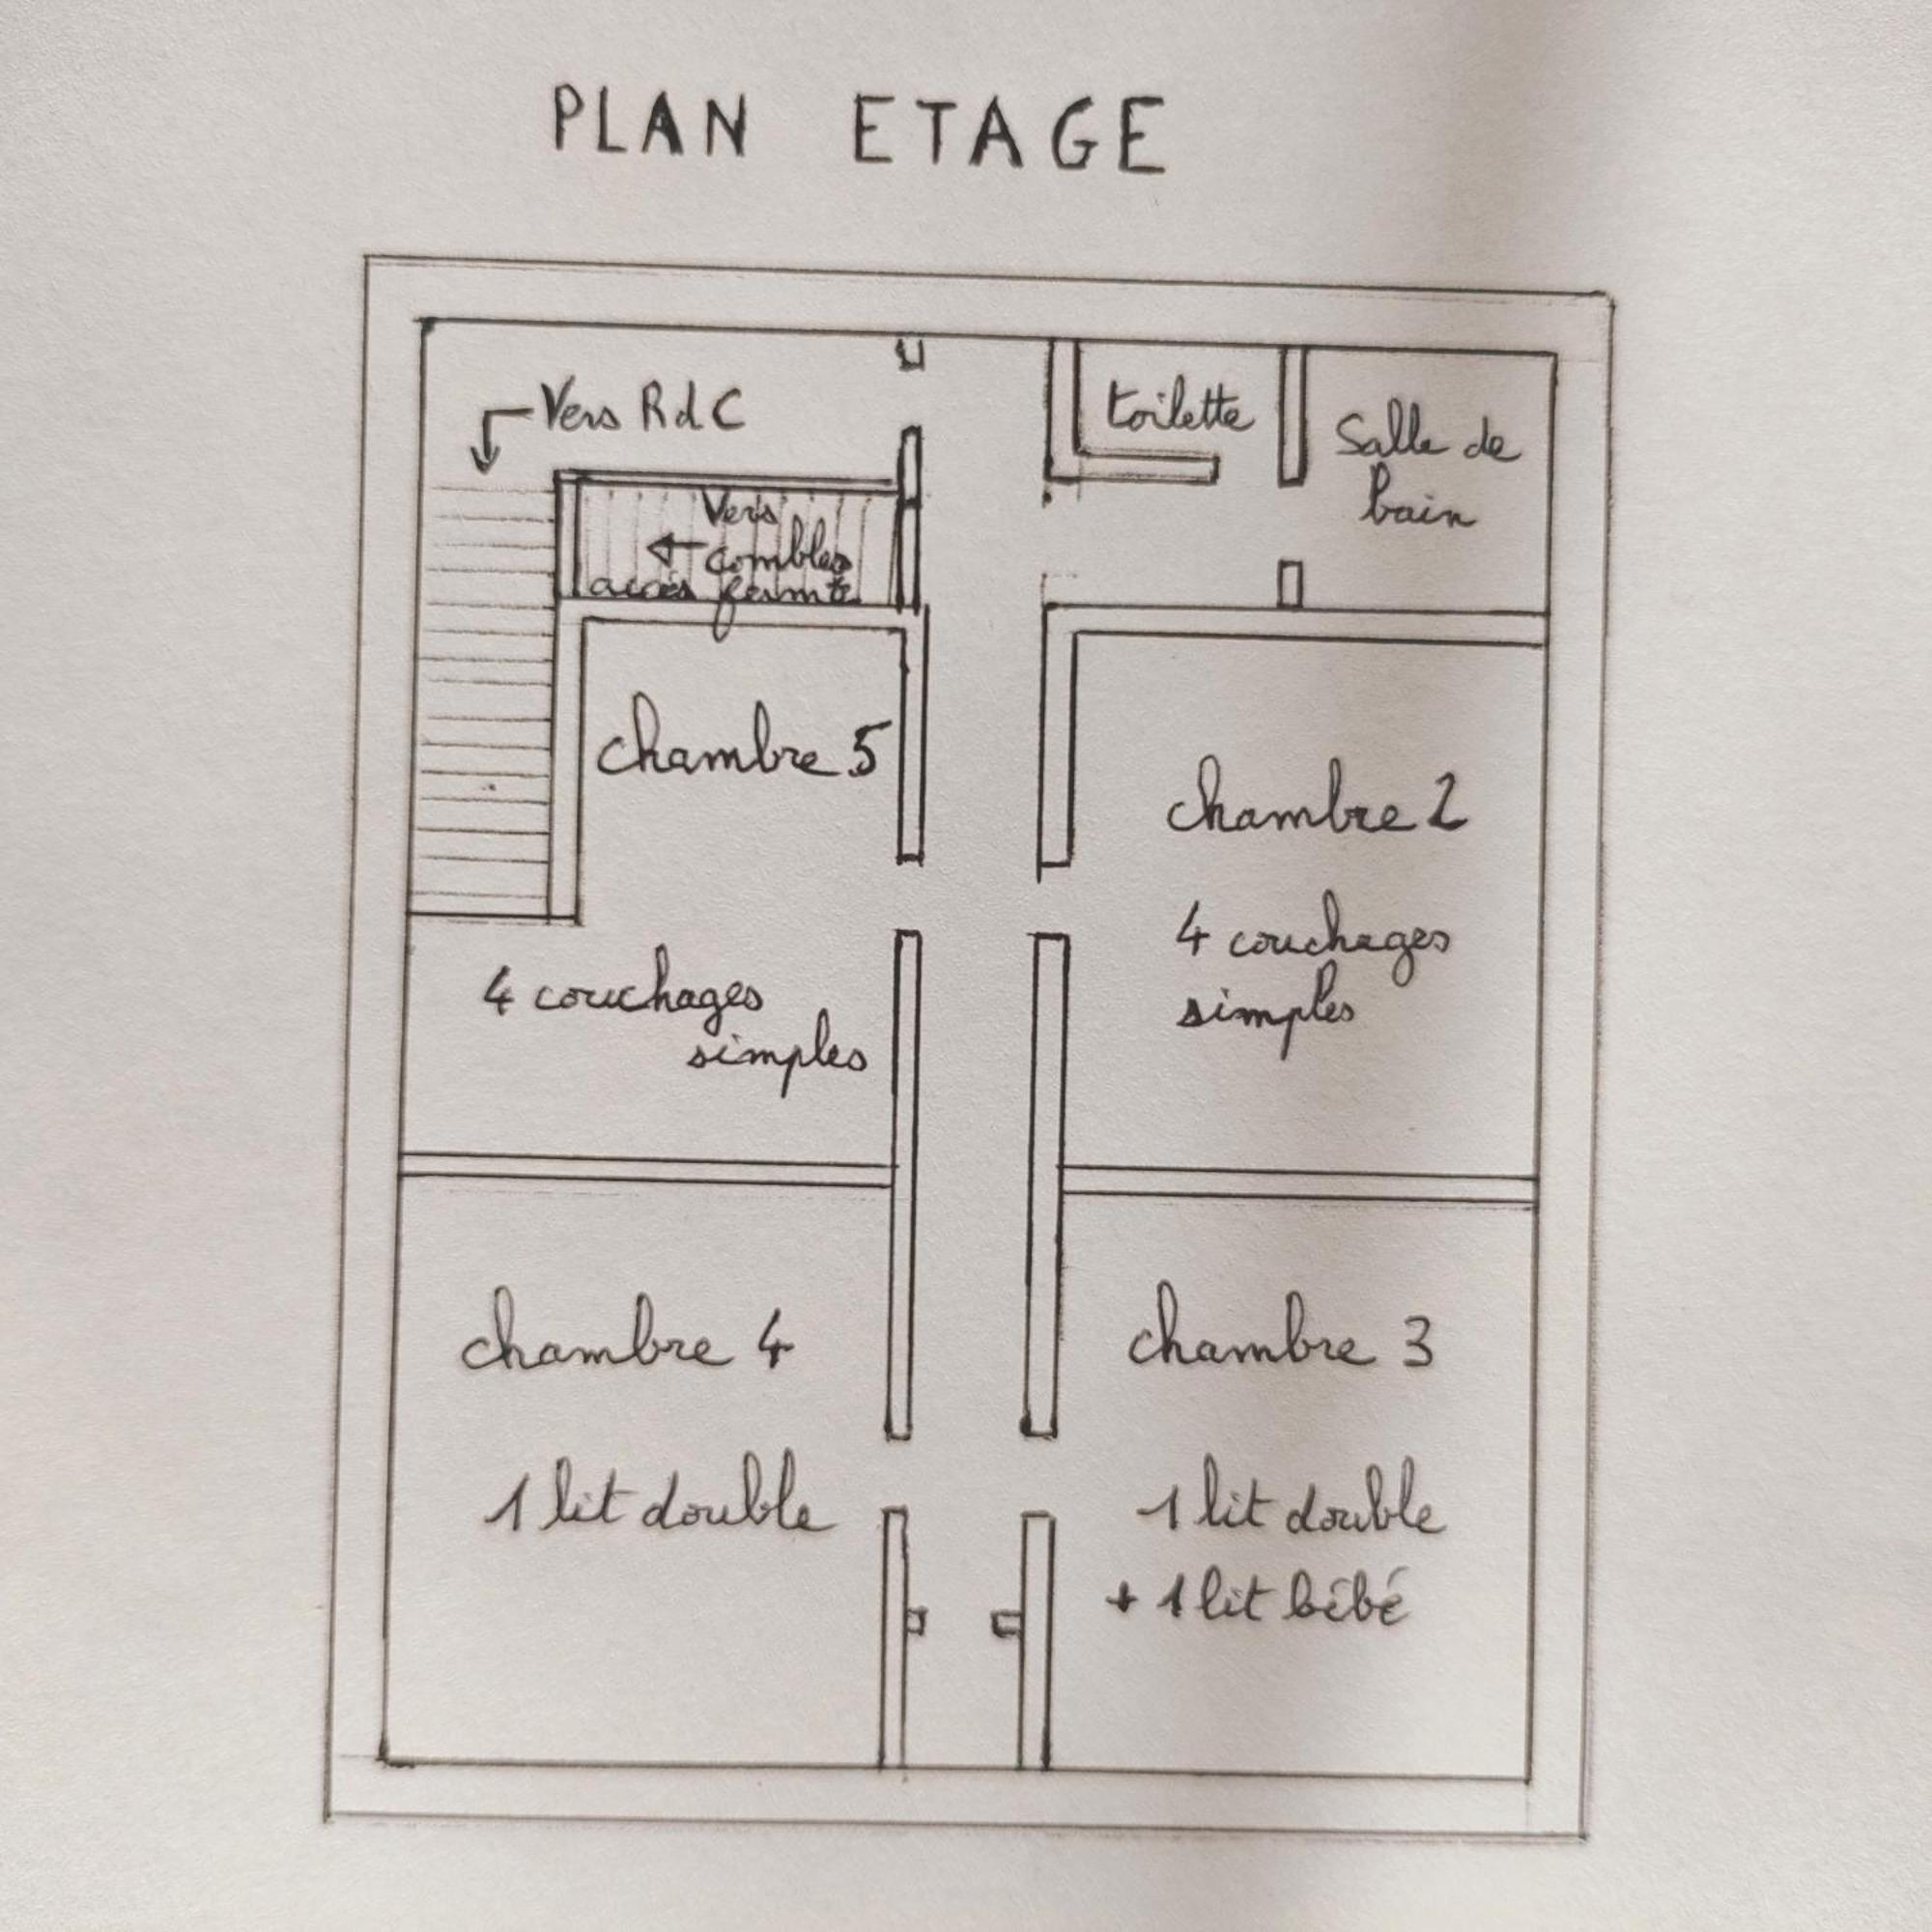 PLAN ETAGE
Vers RdC
toilette
Salle de
bain
Vers
combles
accès fermé
chambre 5
4 couchages
simples
chambre 2
4 couchages
simples
chambre 4
1 lit double
chambre 3
1 lit double
+ 1 lit bébé